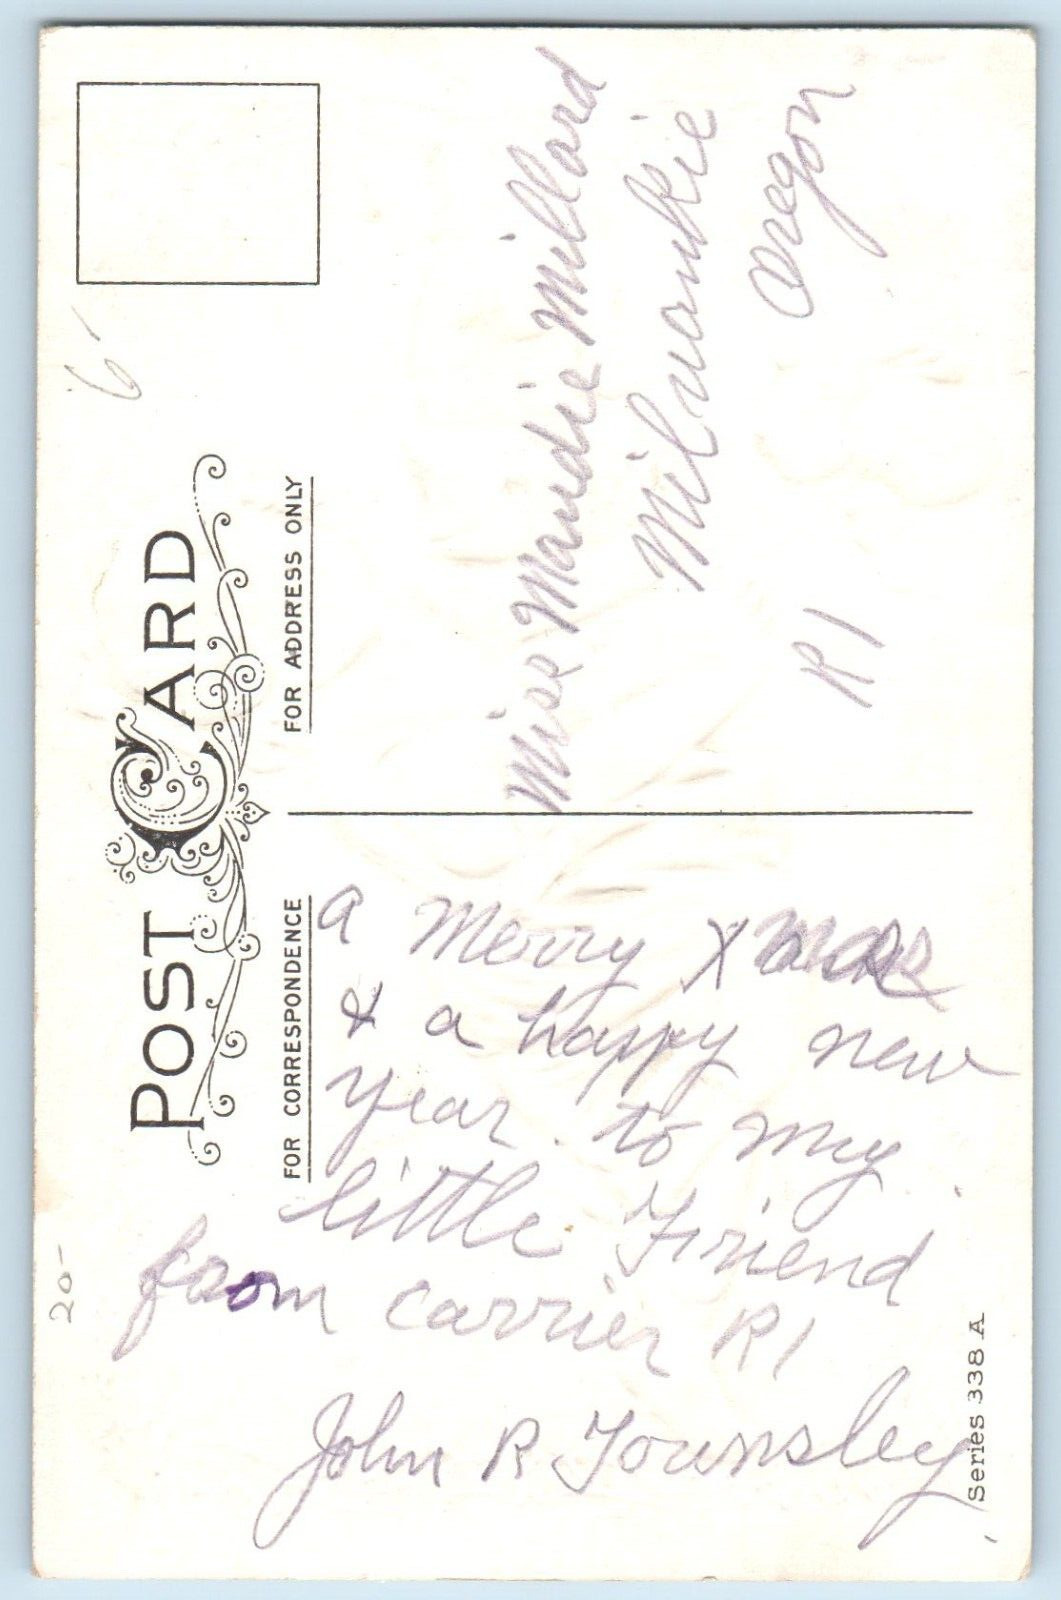 POST CARD
FOR CORRESPONDENCE
FOR ADDRESS ONLY
a Merry Xmas
& a happy new
year. to my
little Friend
from carrier R1
John R Townsley
Miss Maudie Millard
Milwaukie
R1 Oregon
Series 338 A
20-
6